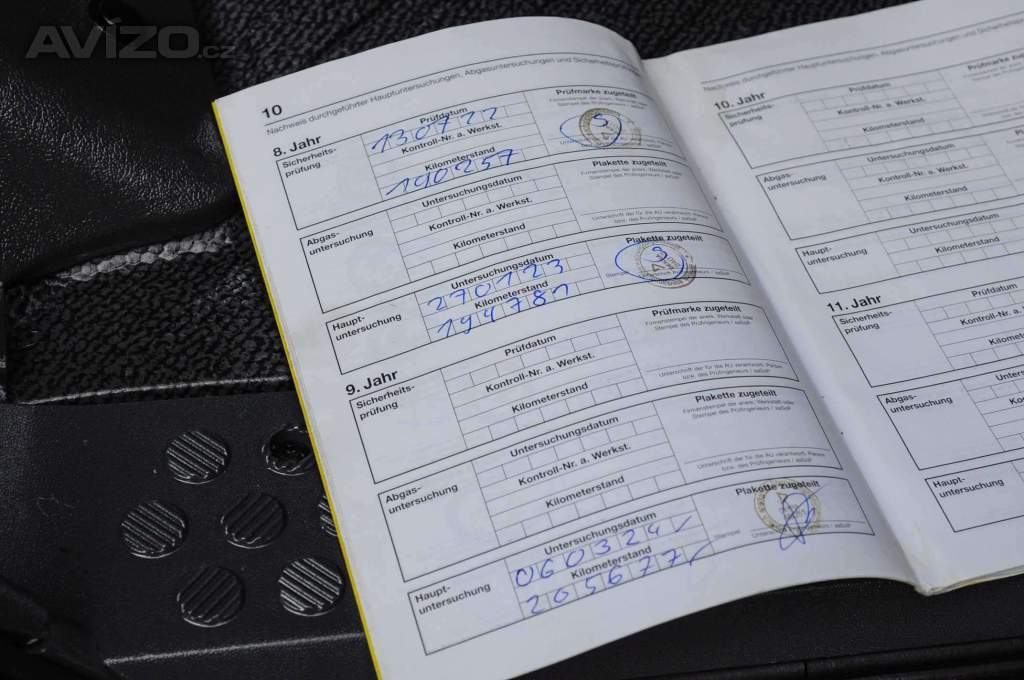 AVIZO.cz
10
Nachweis durchgeführter Hauptuntersuchungen, Abgasuntersuchungen und Sicherheits
8. Jahr
Sicherheits-
prüfung
Prüfdatum
130722
Kontroll-Nr. a. Werkst.
Kilometerstand
190257
Prüfmarke zugeteilt
Abgas-
untersuchung
Untersuchungsdatum
Kontroll-Nr. a. Werkst.
Kilometerstand
Plakette zugeteilt
Firmenstempel der anerk. Werkstatt oder
Stempel des Prüfingenieurs / aaSoP
Unterschrift der für die AU verantwort. Person
bzw. des Prüfingenieurs / aaSoP
Haupt-
untersuchung
Untersuchungsdatum
270123
Kilometerstand
194781
Plakette zugeteilt
9. Jahr
Sicherheits-
prüfung
Prüfdatum
Kontroll-Nr. a. Werkst.
Kilometerstand
Prüfmarke zugeteilt
Firmenstempel der anerk. Werkstatt oder
Stempel des Prüfingenieurs / aaSoP
Unterschrift der für die AU verantwort. Person
bzw. des Prüfingenieurs / aaSoP
Abgas-
untersuchung
Untersuchungsdatum
Kontroll-Nr. a. Werkst.
Kilometerstand
Plakette zugeteilt
Firmenstempel der anerk. Werkstatt oder
Stempel des Prüfingenieurs / aaSoP
Unterschrift der für die AU verantwort. Person
bzw. des Prüfingenieurs / aaSoP
Haupt-
untersuchung
Untersuchungsdatum
060324
Kilometerstand
205677
Plakette zugeteilt
Stempel
Nachweis durchgeführter Hauptuntersuchungen, Abgasuntersuchungen und Sicherheits
10. Jahr
Sicherheits-
prüfung
Prüfdatum
Kontroll-Nr. a. Werkst.
Kilometerstand
Abgas-
untersuchung
Untersuchungsdatum
Kontroll-Nr. a. Werkst.
Kilometerstand
Haupt-
untersuchung
Untersuchungsdatum
Kilometerstand
11. Jahr
Sicherheits-
prüfung
Prüfdatum
Kontroll-Nr. a.
Kilometerstand
Abgas-
untersuchung
Haupt-
untersuchung